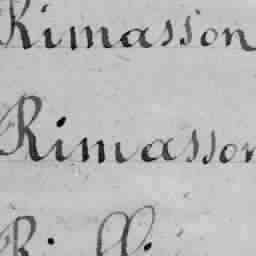 Rimasson
Rimasson